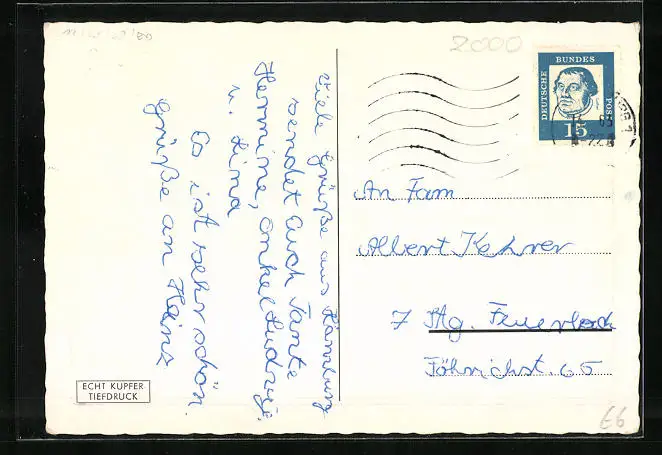 2000
DEUTSCHE
BUNDES
POST
15
Viele Grüße aus Hamburg
sendet Euch Tante
Hermine, Onkel Ludwig
u. Lina
Es ist sehr schön.
Grüße an Heinz
An Fam
Albert Kehrer
7 Stg. Feuerbach
65
ECHT KUPFER
TIEFDRUCK
66